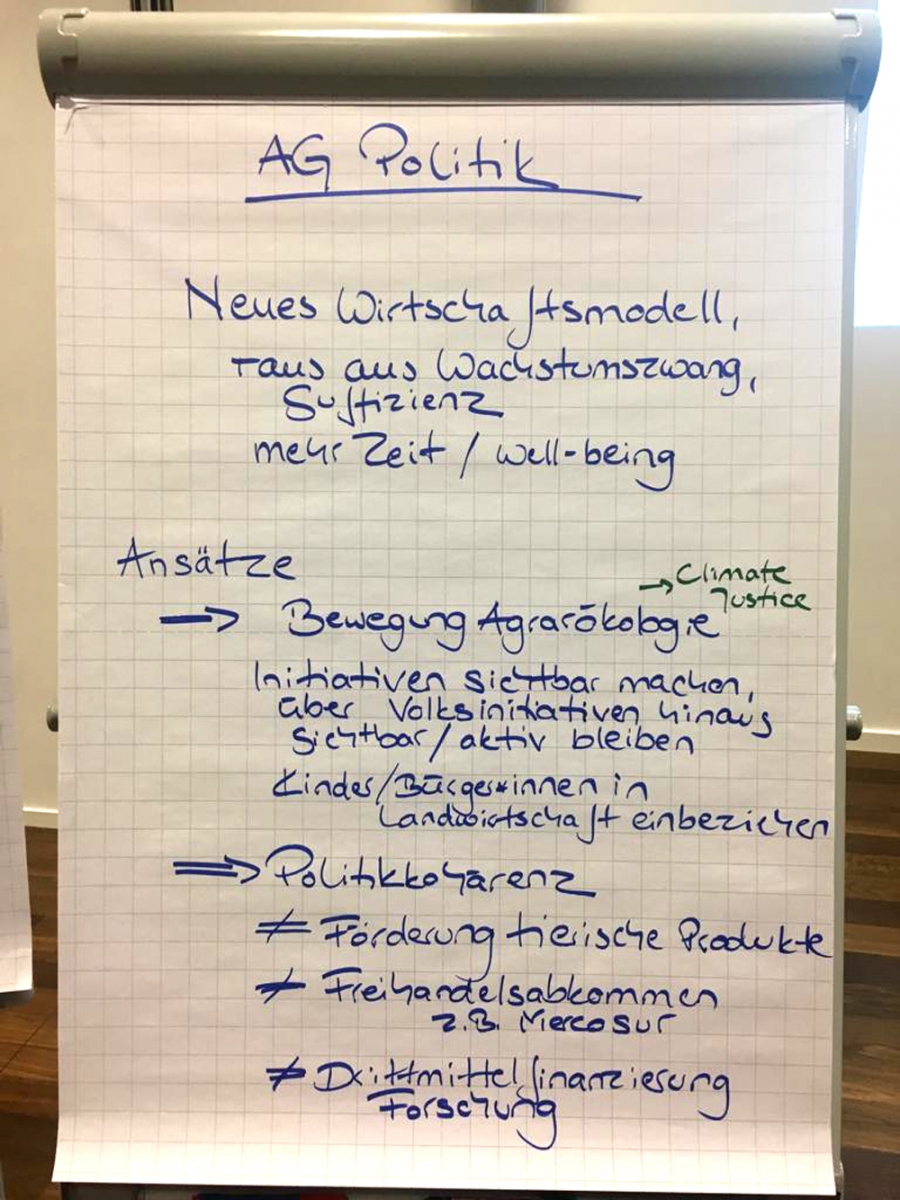 AG Politik
Neues Wirtschaftsmodell,
raus aus Wachstumszwang,
Suffizienz
mehr Zeit / well-being
Ansätze
→ Climate
Justice
→ Bewegung Agrarökologie
Initiativen sichtbar machen,
über Volksinitiativen hinaus
sichtbar/aktiv bleiben
Kinder/Bürger*innen in
Landwirtschaft einbeziehen
⇒ Politikkohärenz
≠ Förderung tierische Produkte
≠ Freihandelsabkommen
z.B. Mercosur
≠ Drittmittelfinanzierung
Forschung